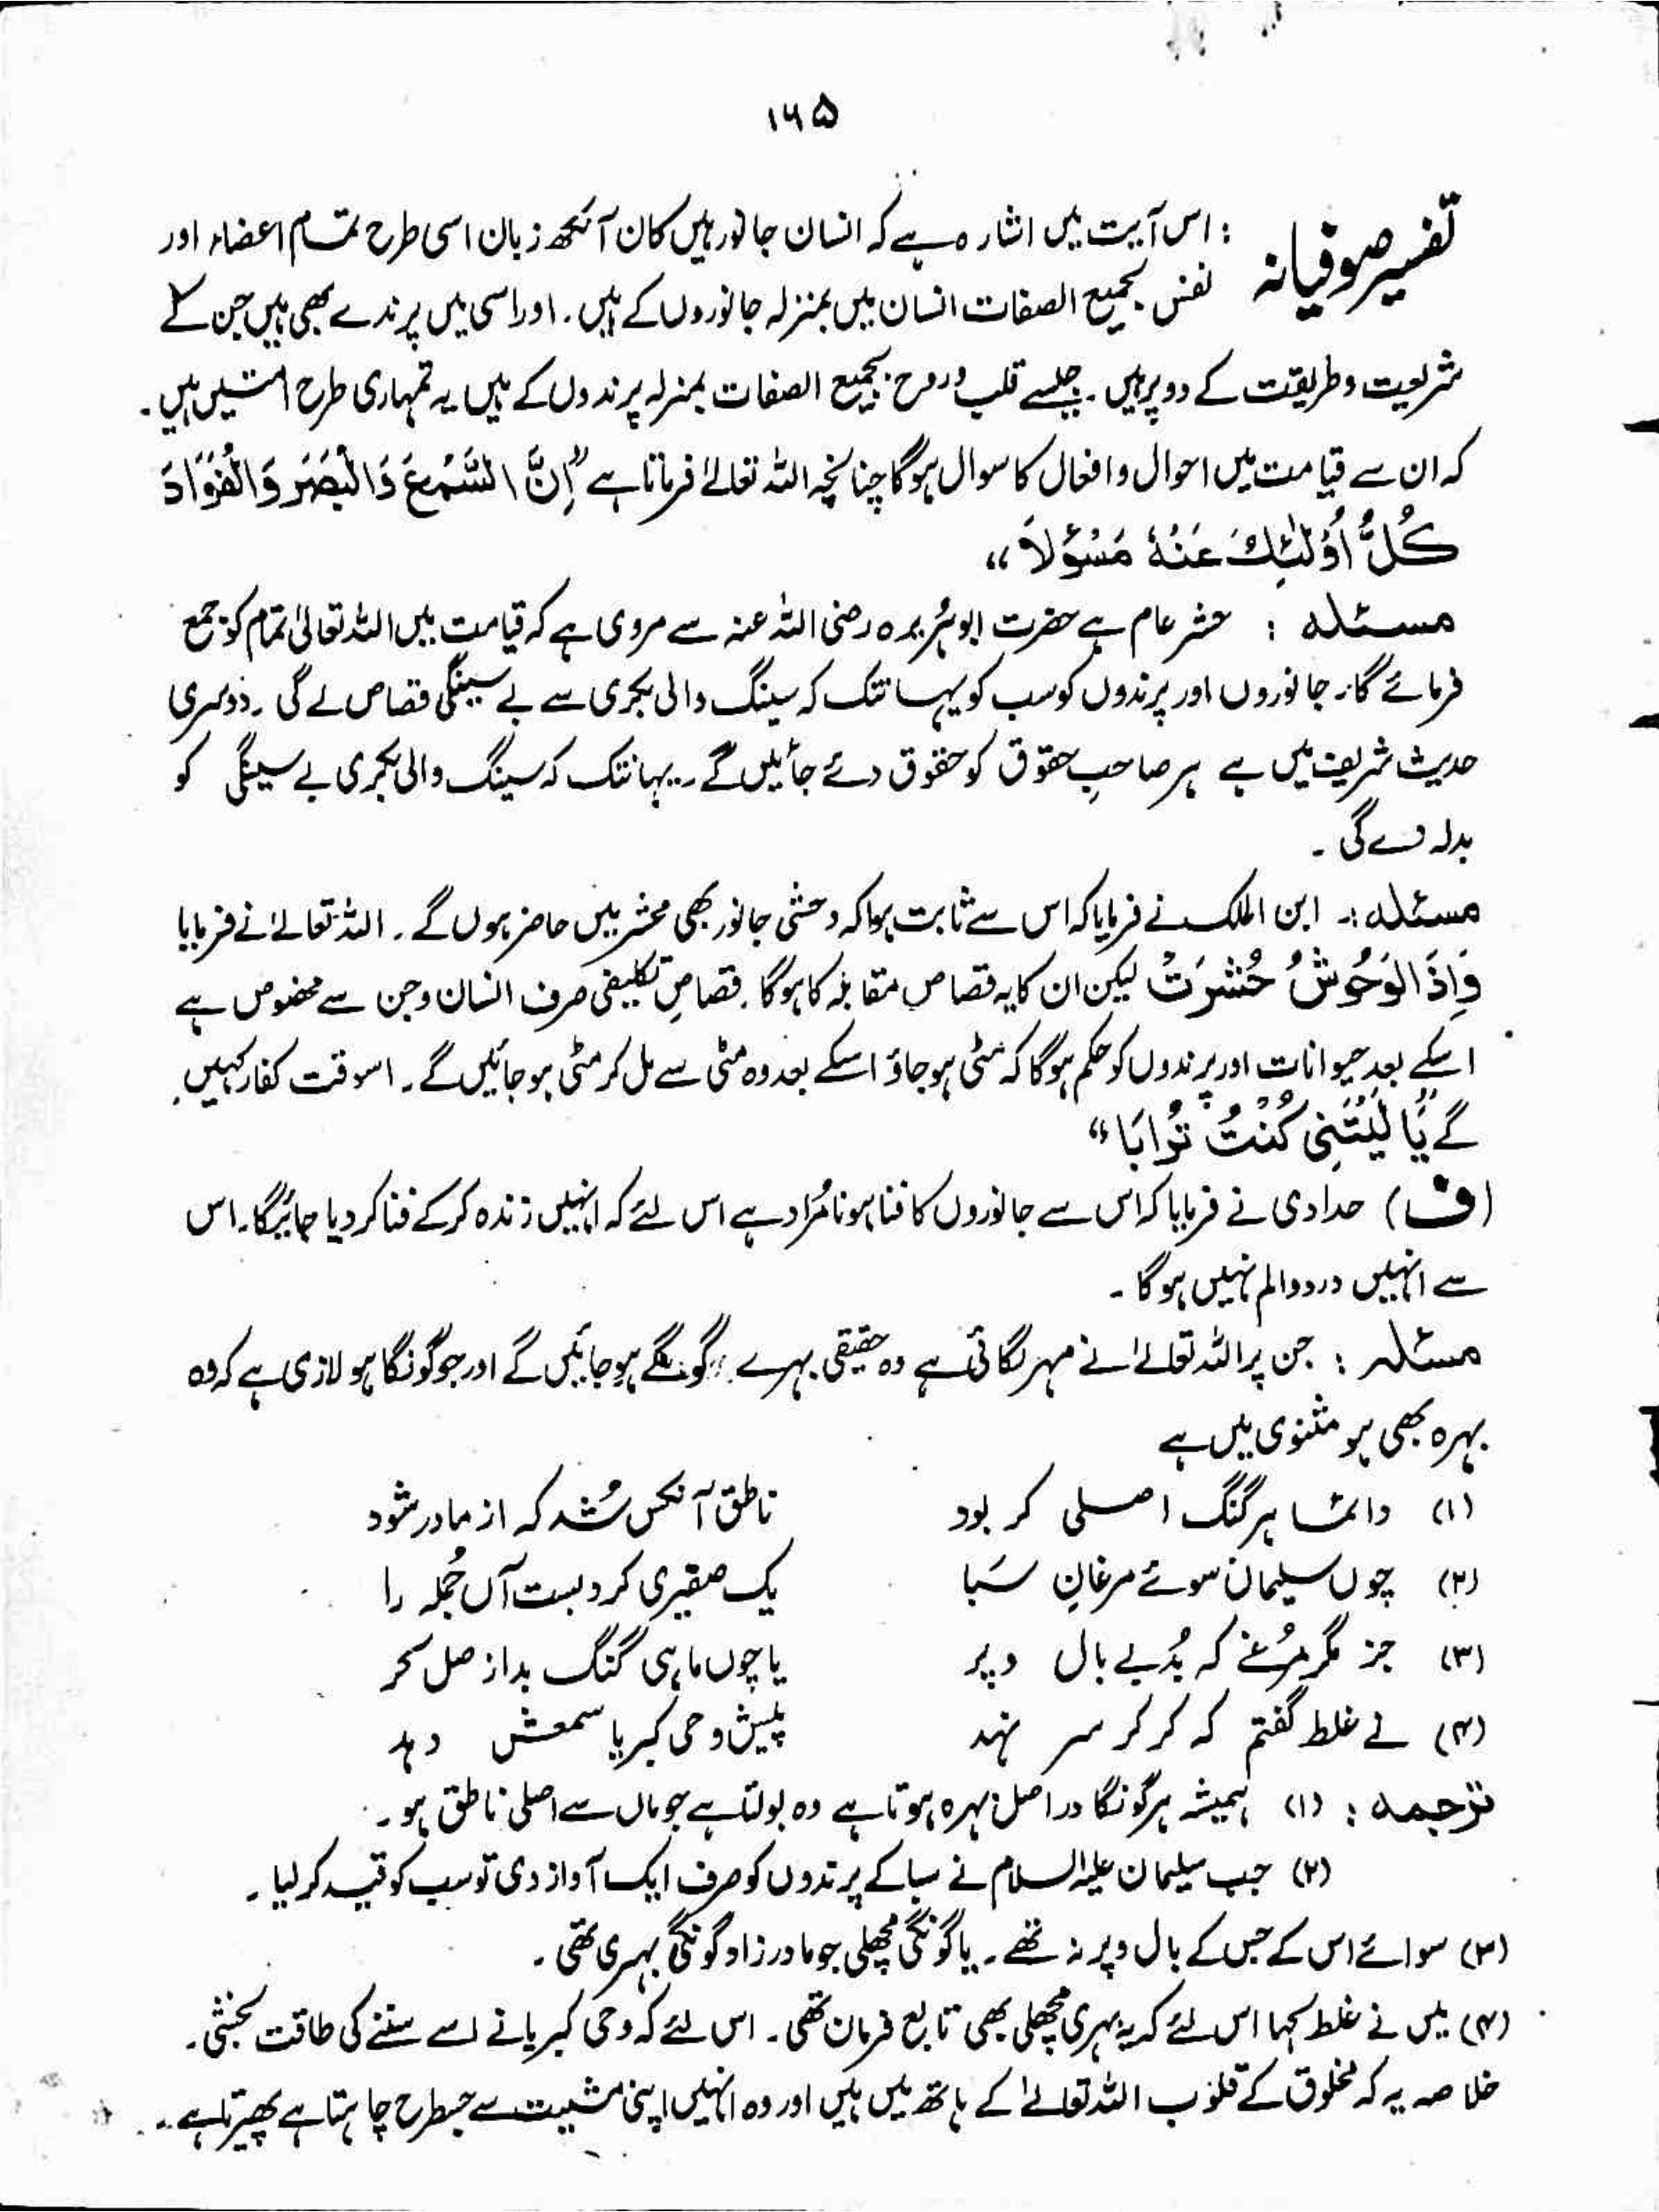 ۱۶۵
تفسیر صوفیانہ : اس آیت میں اشارہ ہے کہ انسان جانور ہیں کان آنکھ زبان اسی طرح تمام اعضاء اور
نفس بجمیع الصفات انسان میں بمنزلہ جانوروں کے ہیں۔ اور اسی میں پرندے بھی ہیں جن کے
شریعت و طریقت کے دو پر ہیں۔ جیسے قلب و روح بجمیع الصفات بمنزلہ پرندوں کے ہیں یہ تمہاری طرح امتیں ہیں۔
کہ ان سے قیامت میں احوال و افعال کا سوال ہوگا چنانچہ اللہ تعالیٰ فرماتا ہے ”اِنَّ السَّمْعَ وَالْبَصَرَ وَالْفُؤَادَ
كُلُّ اُولٰٓئِكَ عَنْهُ مَسْؤُلًا“
مسئلہ : حشر عام ہے حضرت ابو ہُریرہ رضی اللہ عنہ سے مروی ہے کہ قیامت میں اللہ تعالیٰ تمام کو جمع
فرمائے گا۔ جانوروں اور پرندوں کو سب کو یہانتک کہ سینگ والی بکری سے بے سینگی قصاص لے گی۔ دوسری
حدیث شریف میں ہے ہر صاحبِ حقوق کو حقوق دئے جائیں گے۔ یہانتک کہ سینگ والی بکری بے سینگی کو
بدلہ دے گی۔
مسئلہ :۔ ابن الملک نے فرمایا کہ اس سے ثابت ہوا کہ وحشی جانور بھی محشر میں حاضر ہوں گے۔ اللہ تعالےٰ نے فرمایا
وَاِذَا الْوُحُوْشُ حُشِرَتْ لیکن ان کا یہ قصاص مقابلہ کا ہوگا۔ قصاصِ تکلیفی صرف انسان و جن سے مخصوص ہے
اسکے بعد حیوانات اور پرندوں کو حکم ہوگا کہ مٹی ہو جاؤ اسکے بعد وہ مٹی سے مل کر مٹی ہو جائیں گے۔ اسوقت کفار کہیں
گے ”يَا لَيْتَنِي كُنْتُ تُرَابًا“
(ف) حدادی نے فرمایا کہ اس سے جانوروں کا فنا ہونا مُراد ہے اس لئے کہ انہیں زندہ کرکے فنا کردیا جائیگا۔ اس
سے انہیں درد و الم نہیں ہوگا۔
مسئلہ : جن پر اللہ تعالےٰ نے مہر لگائی ہے وہ حقیقی بہرے گونگے ہو جائیں گے اور جو گونگا ہو لازمی ہے کہ وہ
بہرہ بھی ہو مثنوی میں ہے
(۱) دائما ہر گنگ اصلی کر بود ناطق آنکس شُد کہ از مادر شود
(۲) چوں سلیمان سوئے مرغانِ سَبا یک صفیری کرد بست آں جُملہ را
(۳) جز مگر مُرغے کہ بُد بے بال و پر یا چوں ماہی گنگ بد از اصل کر
(۴) نے غلط گفتم کہ کر کر سر نہد پیش وحی کبریا سمعش دہد
ترجمہ : (۱) ہمیشہ ہر گونگا دراصل بہرہ ہوتا ہے وہ بولتا ہے جو ماں سے اصلی ناطق ہو۔
(۲) جب سلیمان علیہ السلام نے سبا کے پرندوں کو صرف ایک آواز دی تو سب کو قید کرلیا۔
(۳) سوائے اس کے جس کے بال و پر نہ تھے۔ یا گونگی مچھلی جو مادرزاد گونگی بہری تھی۔
(۴) میں نے غلط کہا اس لئے کہ یہ بہری مچھلی بھی تابع فرمان تھی۔ اس لئے کہ وحی کبریا نے اسے سننے کی طاقت بخشی۔
خلاصہ یہ کہ مخلوق کے قلوب اللہ تعالےٰ کے ہاتھ میں ہیں اور وہ انہیں اپنی مشیت سے جسطرح چاہتا ہے پھیرتا ہے۔